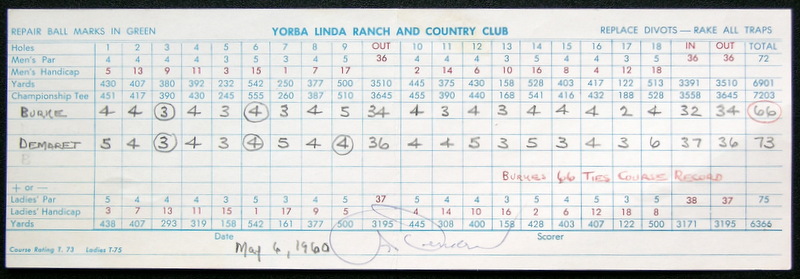 REPAIR BALL MARKS IN GREEN YORBA LINDA RANCH AND COUNTRY CLUB REPLACE DIVOTS — RAKE ALL TRAPS
Holes 1 2 3 4 5 6 7 8 9 OUT 10 11 12 13 14 15 16 17 18 IN OUT TOTAL
Men's Par 4 4 4 4 3 5 3 4 5 36 4 4 4 3 5 4 4 3 5 36 36 72
Men's Handicap 5 13 9 11 3 15 1 7 17 2 14 6 10 16 8 4 12 18
Yards 430 407 380 392 232 542 250 377 500 3510 445 375 430 158 528 403 417 122 513 3391 3510 6901
Championship Tee 451 417 390 430 245 555 260 387 510 3645 455 390 440 168 541 416 432 188 528 3558 3645 7203
BURKE 4 4 3 4 3 4 3 4 5 34 4 3 4 3 4 4 4 2 4 32 34 66
DEMARET 5 4 3 4 3 4 5 4 4 36 4 4 5 3 5 3 4 3 6 37 36 73
B
BURKES 66 TIES COURSE RECORD
+ or —
Ladies' Par 5 4 4 4 3 5 3 4 5 37 5 4 4 3 5 5 4 3 5 38 37 75
Ladies' Handicap 3 7 13 11 15 1 17 9 5 4 14 10 16 2 6 12 18 8
Yards 438 407 293 319 158 542 161 377 500 3195 445 308 400 158 428 403 407 122 500 3171 3195 6366
Date May 6, 1960 Scorer
Course Rating T. 73 Ladies T-75